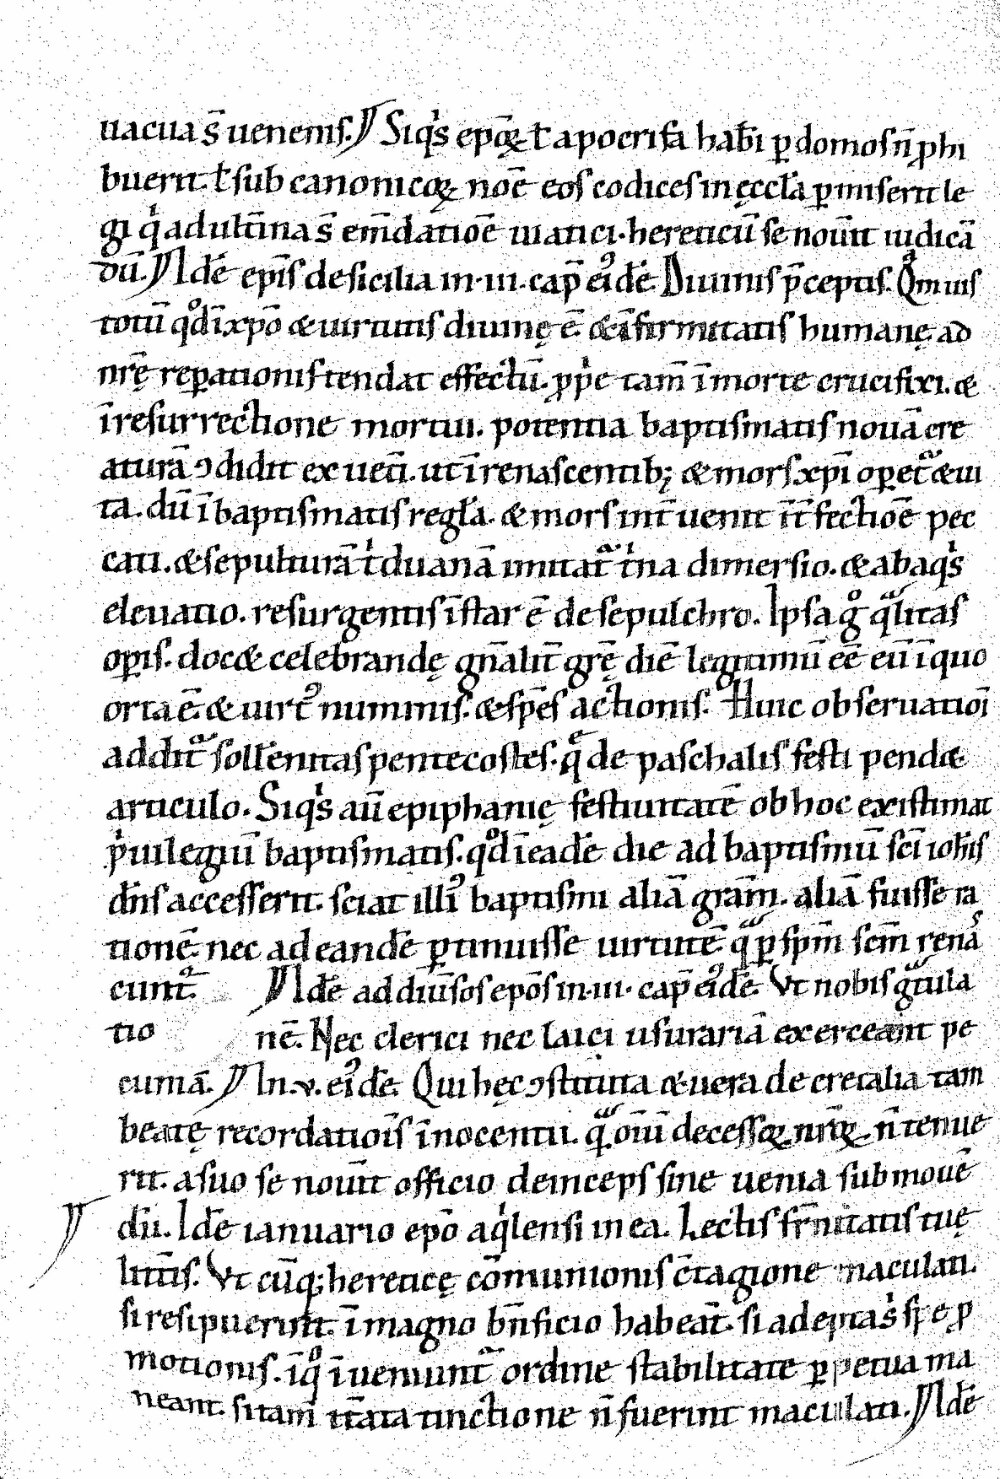 uacua s̄ uenenis. Siq̇s ep̄oꝝ ƚ apocrifa hab̄i ꝑ domos n̄ ꝓhi
buerit. ƚ sub canonicoꝝ no͞e eos codices in ęccƚa ꝑmiserit le
gi q̇ adult̄ina s̄ em̄datio͞e uiatici. hereticū se nou͞it iudicā
dū. Id̄e ep̄is de sicilia in .iii. cap̄ ei᾽d̄e. Diuinis p̄ceptis. Qm̊uis
totū qd̊ ī xp̄o & uirtutis diuinę ē. & īfirmitatis humanę ad
nr̄ę reꝑationis tendat effectū. ꝓp̍e tam̄ ī morte crucifixi. &
ī resurrectione mortui. potentia baptismatis nouā cre
aturā ↄdidit ex uet̄i. ut ī renascentib; & mors xp̄i oꝑet̃ & ui
ta. dū ī baptismatis regƚa. & mors int̄uenit īt̄fectio͞e pec
cati. & sepulturā t̍duanā imitat̃ t̍na dimersio. & ab aq̍s
eleuatio. resurgentis īstar ē de sepulchro. Ipsa g̊ qͣlitas
oꝑis. doc& celebrandę gn̄alit̄ gr̄ę diē legitimū e͞e eū ī quo
orta ē. & uirt᾽ numinis. & sp̄es actionis. Huic obseruatioī
addit̃ sollēnitas pentecostes. q̄ de paschalis festi pend&
articulo. Siq̍s au͞t epiphanię festiuitatē ob hoc existimat
p̍uilegiū baptismatis. qd̊ ī ead̄e die ad baptismū sc̄i ioh̄is
dn̄s accesserit. sciat illi᾽ baptismi aliā gram̄. aliā fuisse ra
tionē. nec ad eand̄e ꝑtinuisse uirtutē. qͣ ꝑ sp̄m sc̄m renas
cunt̃. Id̄e ad diu͞sos ep̄os in .iii. cap̄ ei᾽d̄e. Vt nobis gͣtula
tio nē. Nec clerici nec laici usurariā exerceant pe
cuniā. In .v. ei᾽d̄e. Qui hęc ↄstituta & uera decretalia tam
beatę recordatioīs īnocentii. qͣ om̄iū decessoꝝ nr̄oꝝ n̄ tenue
rit. a suo se nou͞it officio deinceps sine uenia submouē
dū. Id̄e ianuario ep̄o aq̍lensi in ea. Lectis fr̄nitatis tuę
litt̄is. Vt cūq; hereticę cōmunionis c̄tagione maculati.
si resipuerint. ī magno bn̄ficio habeāt. si adepta s̍ spe ꝓ
motionis. ī q̊ īueniunt̃ ordine stabilitate ꝑpetua ma
neant. si tam̄ it̄ata tinctione n̄ fuerint maculati. Id̄e